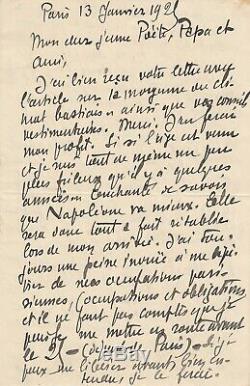 Paris 13 Janvier 192
Mon cher jeune Poète, Papa et
ami,
J'ai bien reçu votre lettre avec
l'article sur la moyenne du cli-
mat bastiais ainsi que vos conseils
vestimentaires. Merci, J'en ferai
mon profit. Si si l'âge est venu
et je suis tout de même un peu
plus frileux qu'il y a quelques
années. Enchanté de savoir
que Napoléone va mieux. Elle
sera donc tout à fait rétablie
lors de mon arrivée. J'ai tou-
jours une peine inouïe à me dépê-
trer de mes occupations pari-
siennes, (occupations et obligations
et il ne faut pas compter que je
puisse me mettre en route avant
le 25 (départ de Paris)
peux me libérer avant, bien en-
tendu je le ferai.